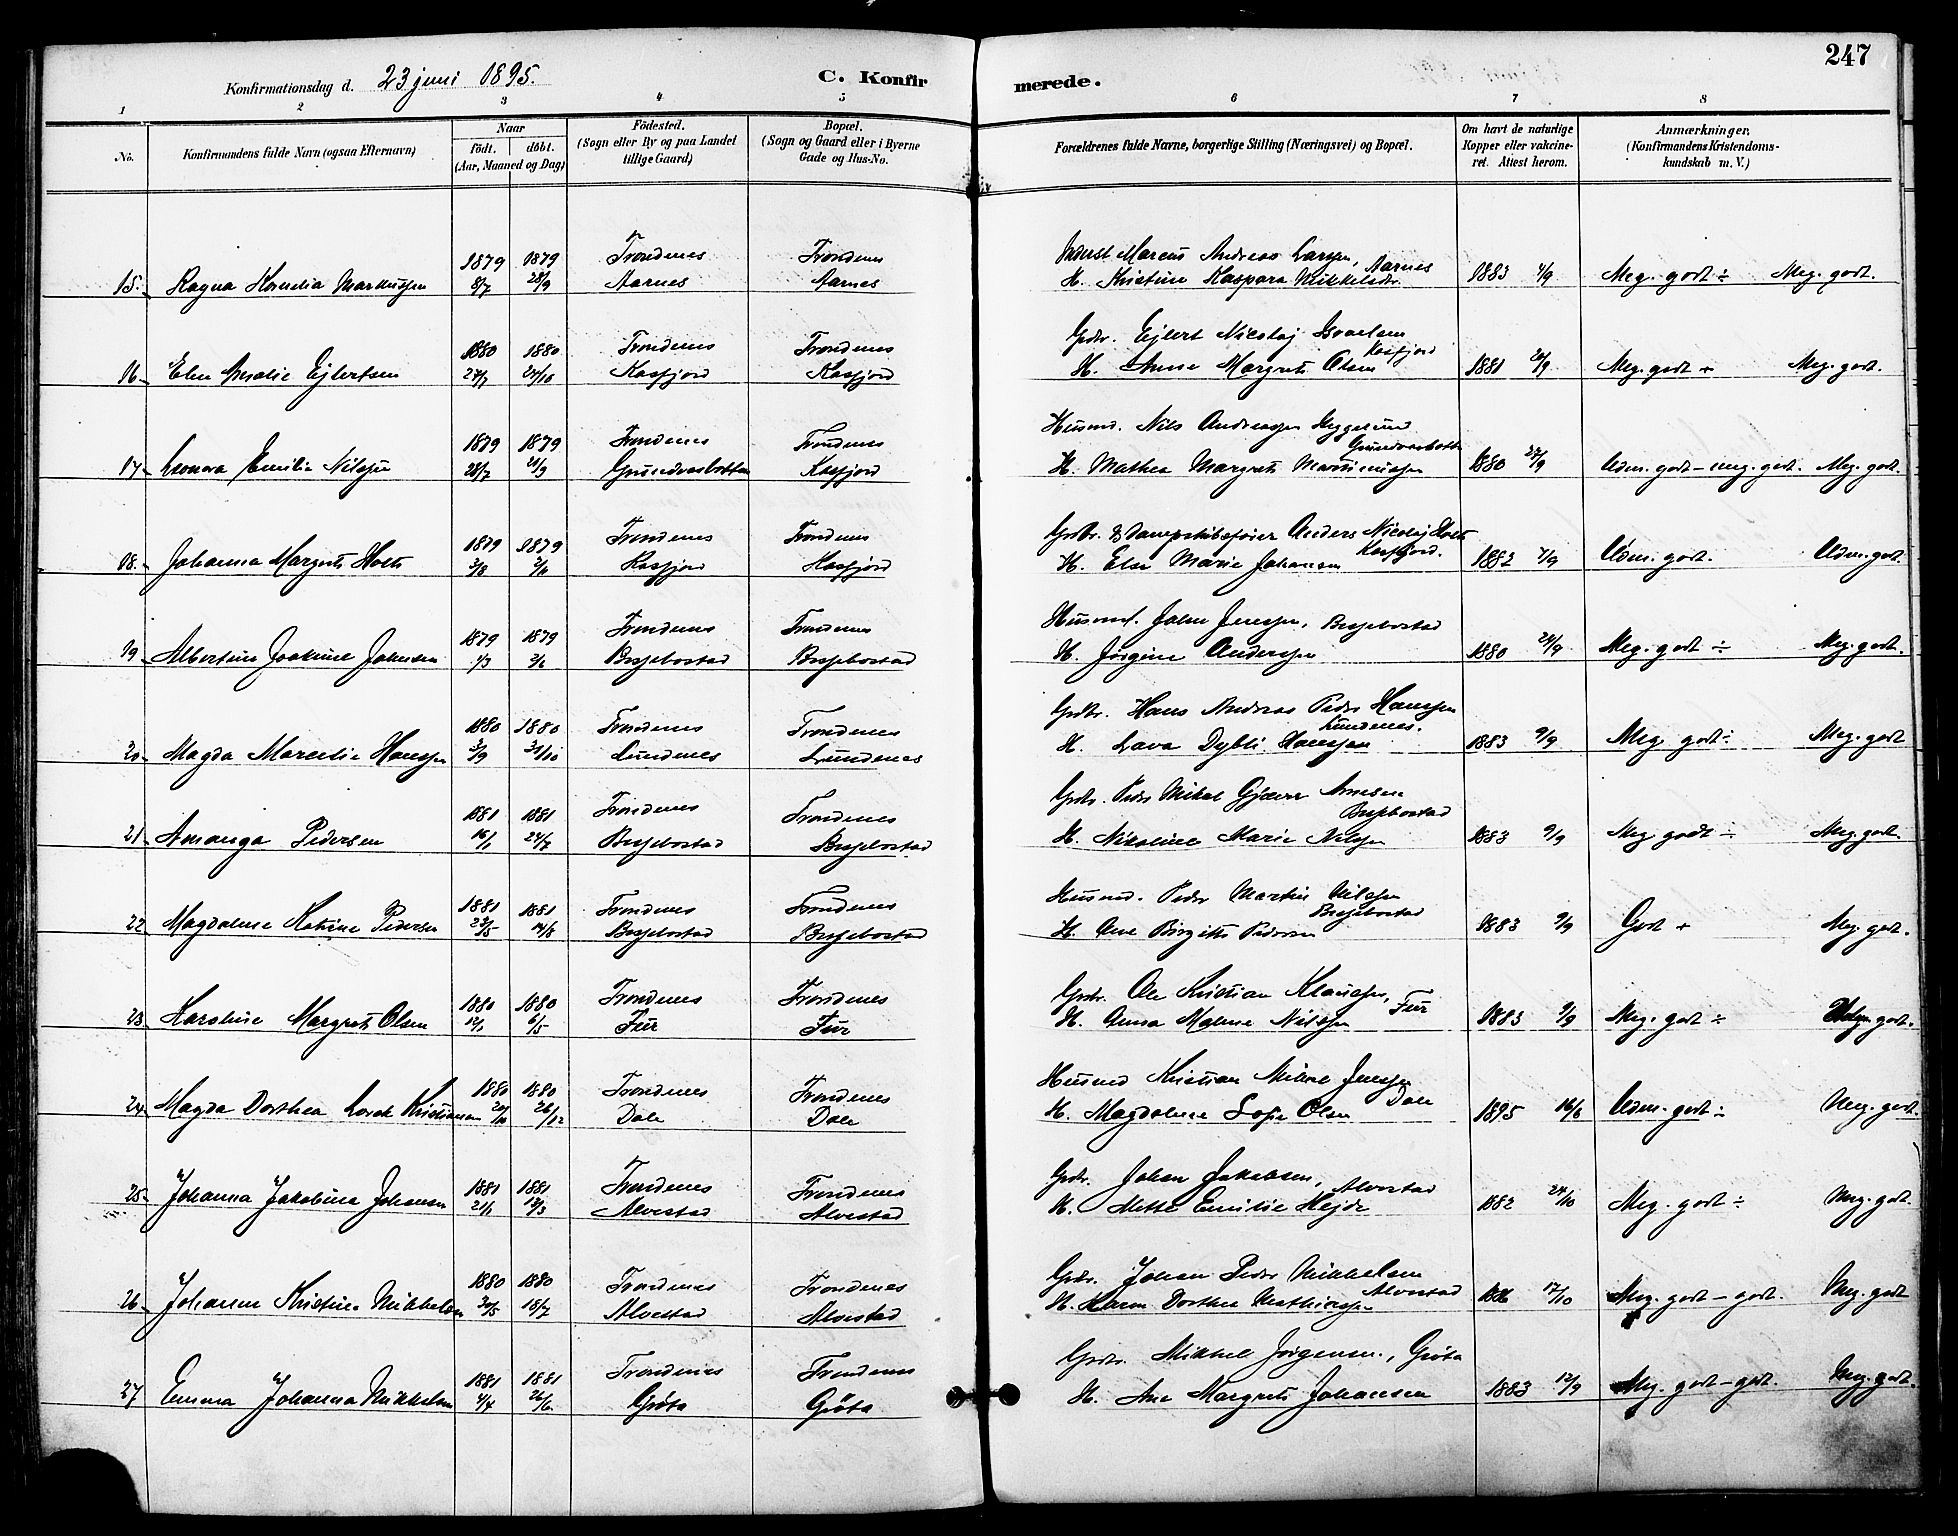 247
Konfirmationsdag d. 23 juni 1895. C. Konfir merede.
1 2 3 4 5 6 7 8
No. Konfirmandens fulde Navn (ogsaa Efternavn) Naar födt. döbt. (Aar, Maaned og Dag) Födested. (Sogn eller By og paa Landet tillige Gaard) Bopæl. (Sogn og Gaard eller i Byerne Gade og Hus-No. Forældrenes fulde Navne, borgerlige Stilling (Næringsvei) og Bopæl. Om havt de naturlige Kopper eller vakcineret. Attest herom. Anmærkninger. (Konfirmandens Kristendomskundskab m. V.)
1879 1879 Trondenes Trondenes Marcus Andreas Larsen, Aarnes
15. Ragna Kornelia Markussen 8/7 28/9 Aarnes Aarnes H. Kristine Kaspara Mikkelsdr. 1883 4/9 Meg. godt ÷ Meg. godt.
1880 1880 Trondenes Trondenes Grdbr. Ejlert Nicolaj Israelsen Kasfjord
16. Elen Ejlertsen 27/7 24/10 Kasfjord Kasfjord H. Anne Margrete Olsen 1881 Meg. godt + Meg. godt.
1879 1879 Trondenes Trondenes Husmd. Nils Andreassen
17. Leonora Emilie Nilssen 28/7 21/9 Kasfjord H. Mathea Margrete 1880 27/9 Udm. godt - meg. godt. Meg. godt.
1879 1879 Trondenes Trondenes Grdbr. & Dampskibsfører Anders Nicolaj Holte Kasfjord.
18. Johanna Margrete Holte 3/8 Kasfjord Kasfjord H. Else Marie Johansen 1882 7/9 Udm. godt. Udm. godt.
1879 1879 Trondenes Trondenes Husmd. John Jenssen,
19 Albertine Joakime Johnsen H. Jørgine Anderssen 1880 24/9 Meg. godt ÷ Meg. godt.
1880 1880 Trondenes Trondenes Grdbr. Hans Andreas Peder Hanssen Lundenes.
20. Magda Marselie Hanssen 3/9 31/10 Lundenes Lundenes H. Lava Dybli Hanssen 1883 9/9 Meg. godt ÷ Meg. godt
1881 1881 Trondenes Trondenes Grdbr. Peder Mikal Gjæver Arnesen
21. Amanga Pedersen 16/1 24/7 H. Nikoline Marie Nilssen 1883 9/9 Meg godt ÷ Meg. godt.
1881 1881 Trondenes Trondenes Husmd. Peder Martin Nilssen
22 Magdalene Katrine Pedersen 23/5 14/8 H. Ane Birgitte Pedersen 1883 9/9 Godt + Meg. godt.
1880 1880 Trondenes Trondenes Grdbr. Ole Kristian Klaussen, Fur
23. Karoline Margrete Olsen 12/1 6/5 Fur Fur H. Anna Malene Nilssen 1883 9/9 Meg. godt ÷ godt.
1880 1880 Trondenes Trondenes Husmd Kristian Mikal Jenssen Dale
24. Magda Dorthea Kristiansen 20/10 26/12 Dale Dale H. Magdalene Sofie Olsen 1895 16/6 Udm. godt ÷ Meg. godt.
1881 1881 Trondenes Trondenes Grdbr. Johan Jakobsen, Alvestad
25. Johanna Jakobine Johansen 21/1 13/3 Alvestad Alvestad H. Mette Emilie Hejde 1882 24/10 Meg. godt ÷ Meg. godt.
1880 1880 Trondenes Trondenes Grdbr. Johan Peder Mikkelsen Alvestad
26. Johanne Kristine Mikkelsen 30/5 18/7 Alvestad Alvestad H. Karen Dorthea Mathiassen 17/10 Meg. godt - godt. Meg. godt
1881 1881 Trondenes Trondenes Grdbr. Mikkel Jørgensen, Grøta
27 Emma Johanna Mikkelsen 4/4 26/6 Grøta Grøta H. Ane Margrete Johansen 1883 12/9 Meg. godt - godt. Meg. godt.